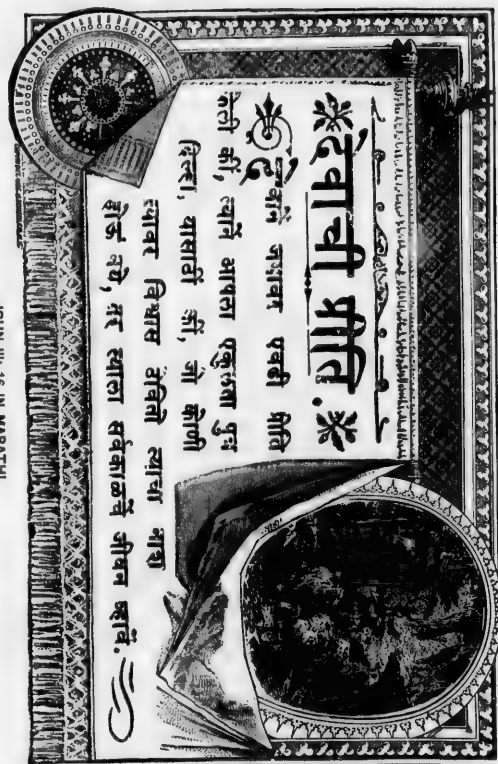 देवाची प्रीति.
देवानें जगावर एवढी प्रीति
केली कीं, त्यानें आपला एकुलता पुत्र
दिल्हा, यासाठीं कीं, जो कोणी
त्यावर विश्वास ठेवितो त्याचा नाश
होऊं नये, तर त्याला सर्वकाळचें जीवन व्हावें.
JOHN III. 16 IN MARATHI